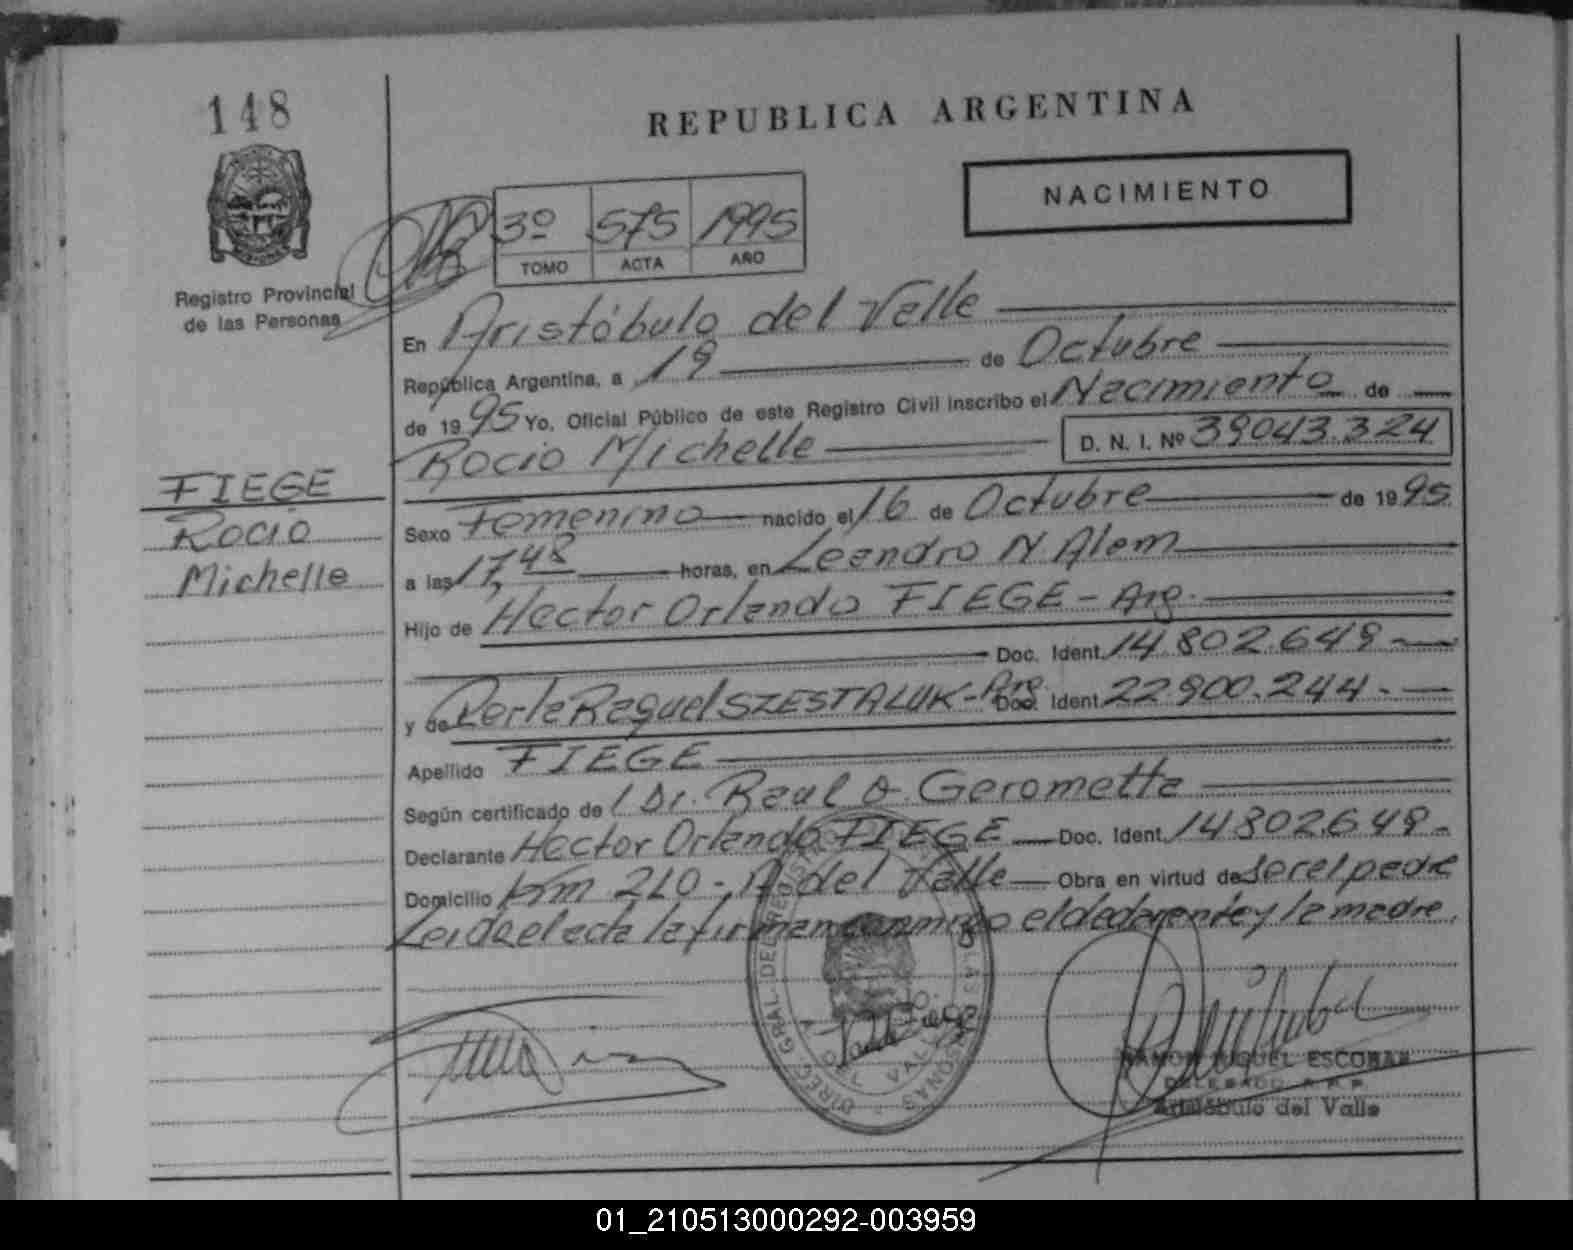 148
REPUBLICA ARGENTINA
NACIMIENTO
3º 575 1995
TOMO ACTA AÑO
Registro Provincial
de las Personas
En Aristóbulo del Valle
República Argentina, a 19 de Octubre
de 1995 Yo, Oficial Público de este Registro Civil inscribo el Nacimiento de
Rocio Michelle D. N. I. Nº 39043.324
FIEGE
Rocio
Michelle
Sexo Femenino nacido el 16 de Octubre de 1995
a las 17,48 horas, en Leandro N Alem
Hijo de Hector Orlando FIEGE - Arg.
Doc. Ident. 14.802.649
y de Perla Raquel SZESTALUK - Arg. Doc. Ident. 22.900.244.-
Apellido FIEGE
Según certificado de Dr. Raul O. Gerometta
Declarante Hector Orlando FIEGE Doc. Ident. 14802.649-
Domicilio Km 210 - A. del Valle Obra en virtud de ser el padre
Leida el acta la firman conmigo el declarante y la madre.
DIREC. GRAL. DEL REGISTRO DE LAS PERSONAS
DEL VALLE
RAMON MIGUEL ESCOBAR
DELEGADO R.P.P.
Aristóbulo del Valle
01_210513000292-003959